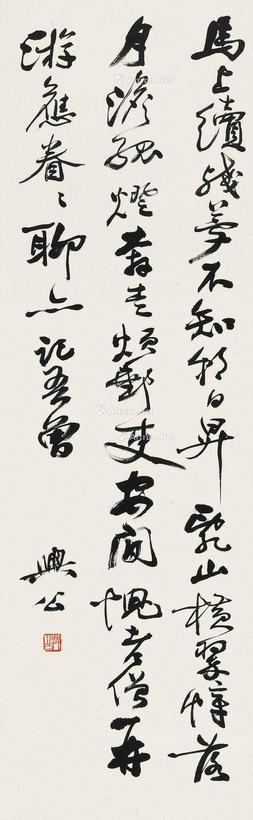 馬上續殘夢不知朝日昇亂山橫翠幛落
月澹孤燈奔走煩郵吏安閒愧老僧再
游應眷〻聊亦記吾曾
興公